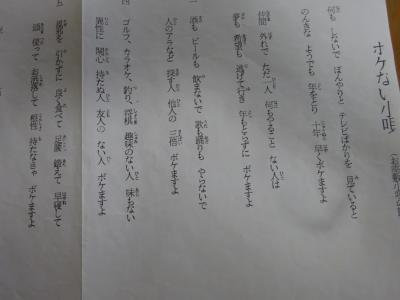 ボケない小唄
何も しないで ぼんやりと テレビばかりを 見ていると
のんきな ようでも 年をとり 十年 早く ボケますよ
仲間 外れで ただ一人 何もやること ない人は
夢も 希望も 逃げて行き 年もとらずに ボケますよ
酒も ビールも 飲まないで 歌も踊りも やらないで
人のアラなど 探す人 他人の 三倍 ボケますよ
四 ゴルフ、カラオケ、釣り、将棋 趣味のない人 味もない
異性に 関心 持たぬ人 友人の ない人 ボケますよ
五 風邪を 引かずに 良く食べて 足腰 鍛えて 早寝して
頭 使って お洒落して 個性 持たなきゃ ボケますよ